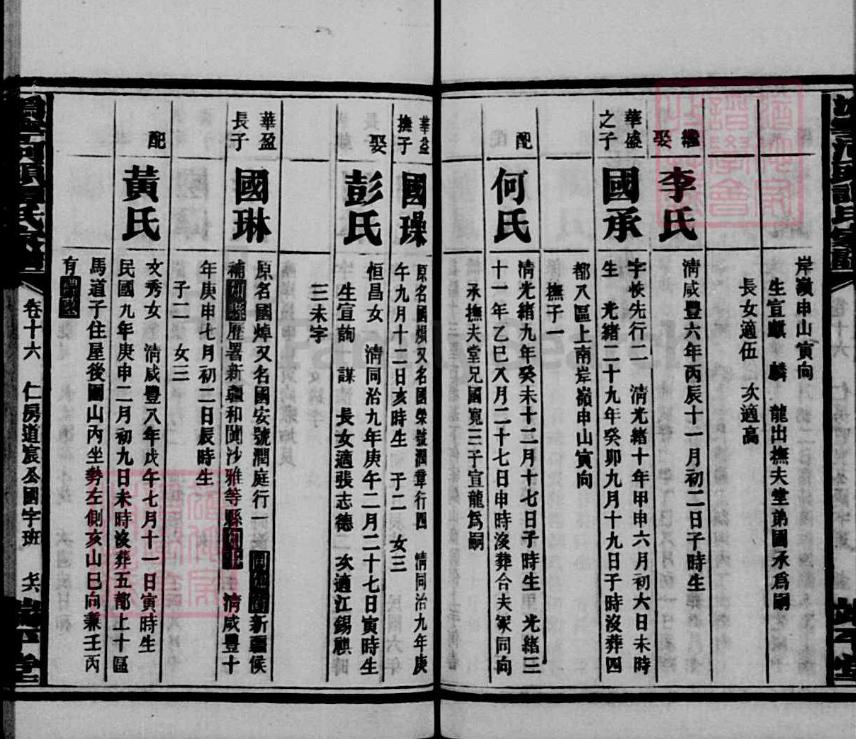 岸嶺申山寅向
生宣麒 麟 龍出撫夫堂弟國承爲嗣
長女適伍 次適高
繼娶
李氏
清咸豐六年丙辰十一月初二日子時生
華盛之子
國承
字恢先行二 清光緒十年甲申六月初六日未時
生 光緒二十九年癸卯九月十九日子時沒葬四
都八區上南岸嶺申山寅向
撫子一
配
何氏
清光緒九年癸未十二月十七日子時生 光緒三
十一年乙巳八月二十七日申時沒葬合夫冢同向
承撫夫堂兄國寬三子宣龍爲嗣
華益撫子
國璪
原名國 又名國榮號潤章行四 清同治九年庚
午九月十二日亥時生 子二 女三
娶
彭氏
恒昌女 清同治九年庚午二月二十七日寅時生
生宣詢 謀 長女適張志德 次適江錫祺
三未字
華盈長子
國琳
原名國焯又名國安號潤庭行一 同 新疆候
補 歷署新疆和闐沙雅等縣 清咸豐十
年庚申七月初二日辰時生
子二 女三
配
黃氏
文秀女 清咸豐八年戊午七月十一日寅時生
民國九年庚申二月初九日未時沒葬五都上十區
馬道子住屋後圖山丙坐勢左側亥山巳向兼壬丙
有
卷十六 仁房道宸公國字班